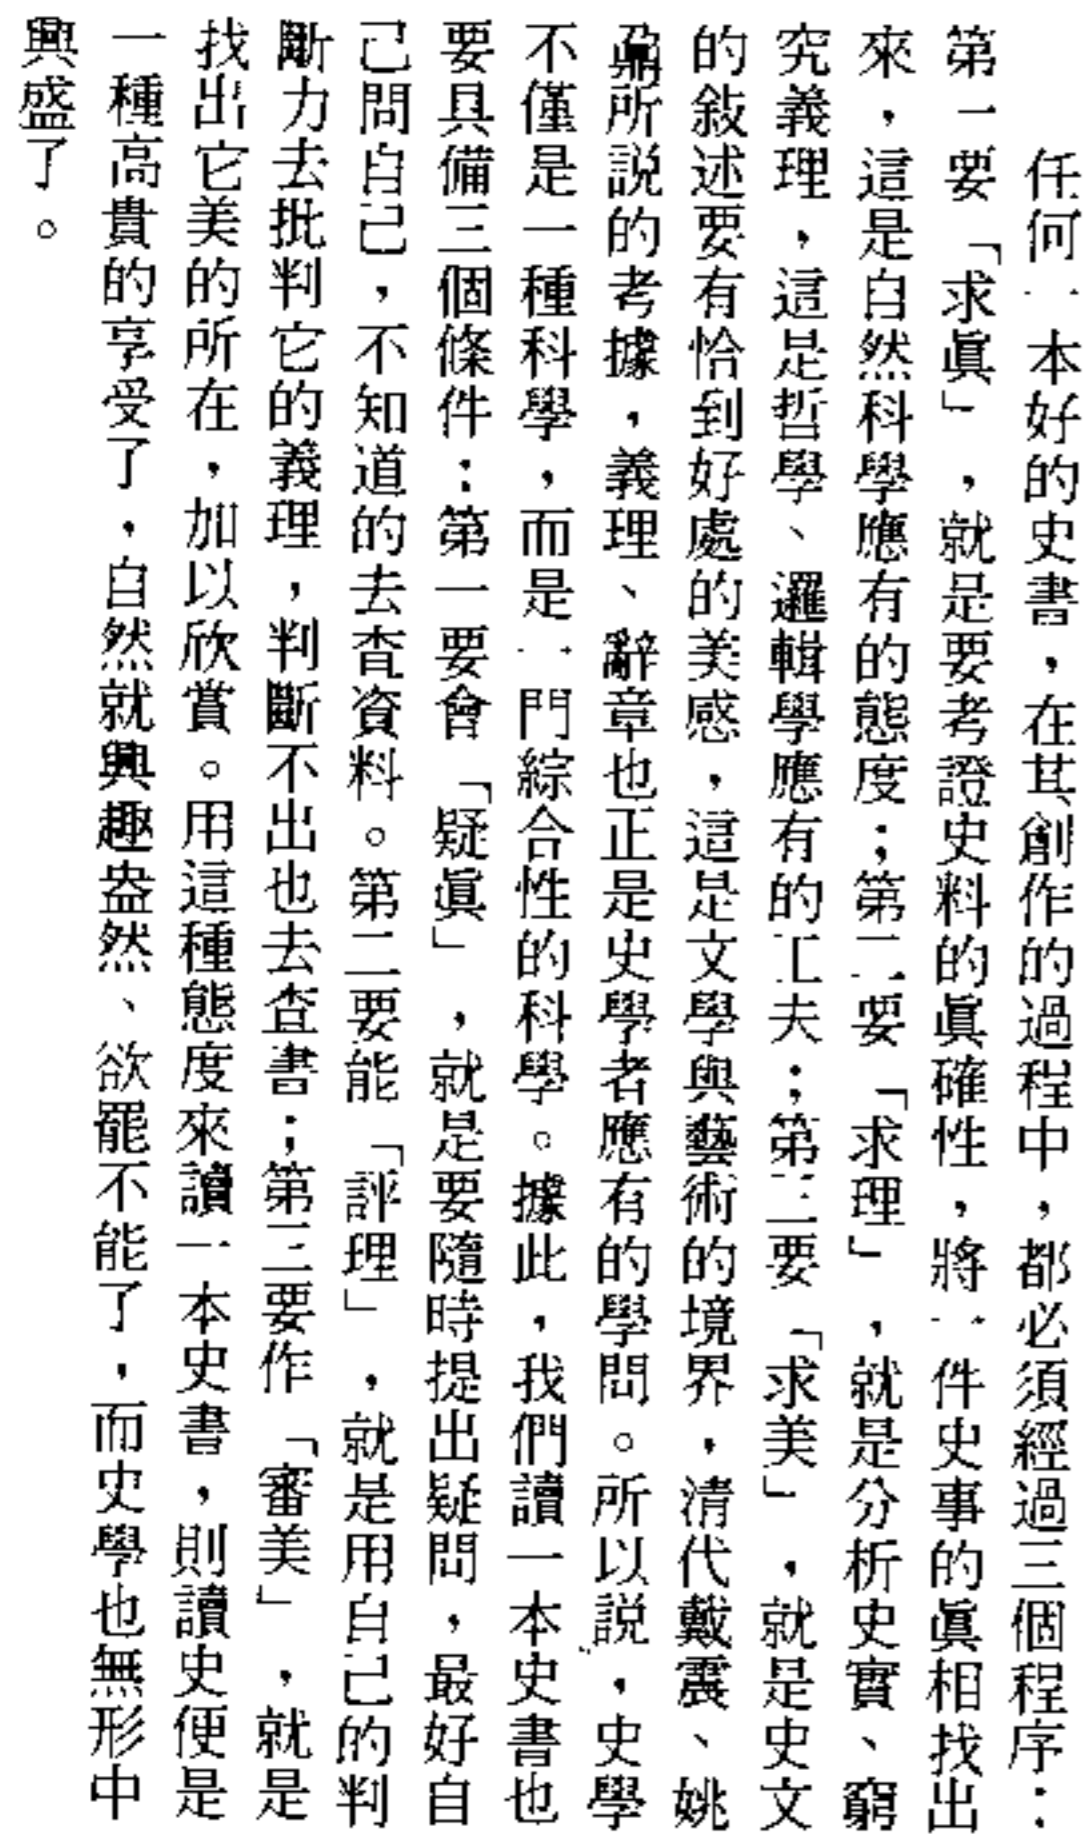 任何一本好的史書，在其創作的過程中，都必須經過三個程序：
第一要「求眞」，就是要考證史料的眞確性，將一件史事的眞相找出
來，這是自然科學應有的態度；第二要「求理」，就是分析史實、窮
究義理，這是哲學、邏輯學應有的工夫；第三要「求美」，就是史文
的敍述要有恰到好處的美感，這是文學與藝術的境界，清代戴震、姚
鼐所説的考據，義理、辭章也正是史學者應有的學問。所以説，史學
不僅是一種科學，而是一門綜合性的科學。據此，我們讀一本史書也
要具備三個條件：第一要會「疑眞」，就是要隨時提出疑問，最好自
己問自己，不知道的去查資料。第二要能「評理」，就是用自己的判
斷力去批判它的義理，判斷不出也去查書；第三要作「審美」，就是
找出它美的所在，加以欣賞。用這種態度來讀一本史書，則讀史便是
一種高貴的享受了，自然就興趣盎然、欲罷不能了，而史學也無形中
興盛了。